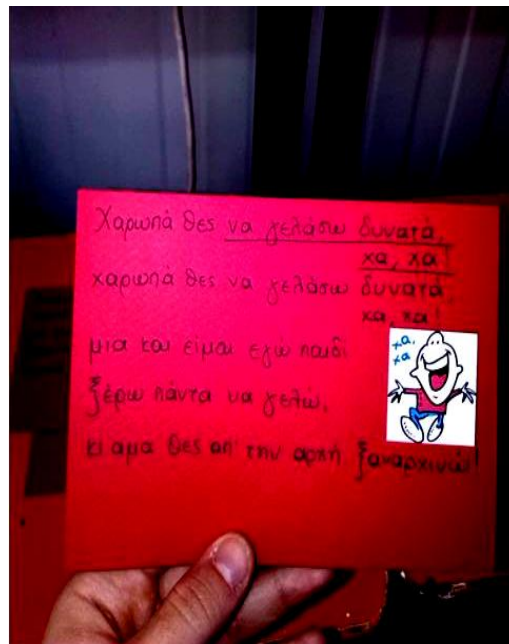 Χαρωπά θες να γελάσω δυνατά,
χα, χα!
χαρωπά θες να γελάσω δυνατά,
χα, χα!
μια και είμαι εγώ παιδί
ξέρω πάντα να γελώ,
κι άμα θες απ' την αρχή ξαναρχινώ!
χα,
χα